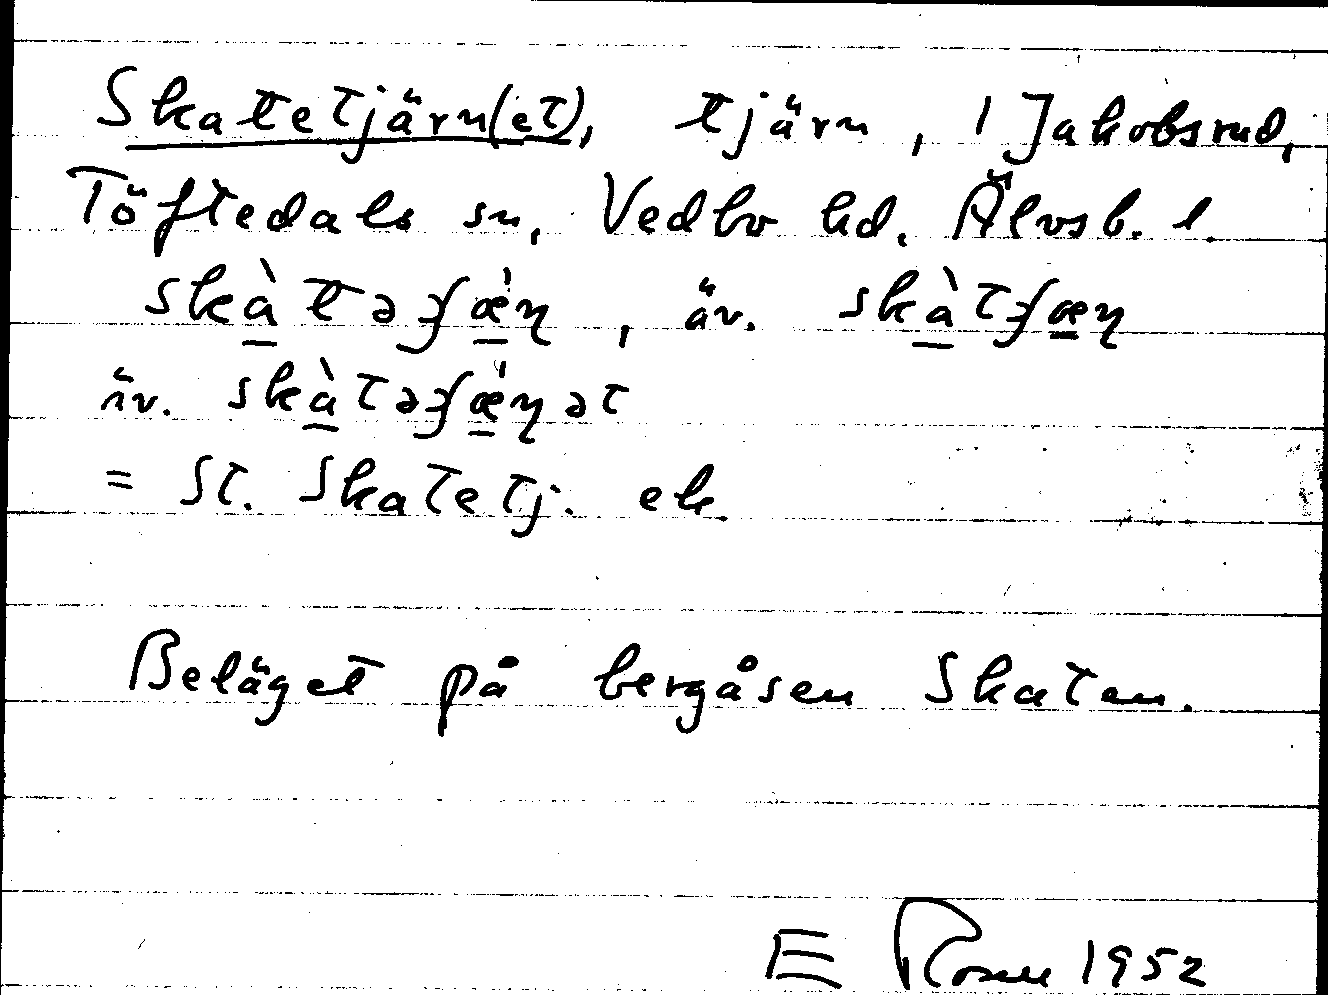 Skatetjärn(et), tjärn, 1 Jakobsrud,
Töftedals sn, Vedbo hd. Älvsb. l.
skàtəʄæ̀ɳ, äv. skàtʄæɳ
äv. skàtəʄæ̀ɳət
= St. Skatetj. ek.
Beläget på bergåsen Skaten.
E 1952